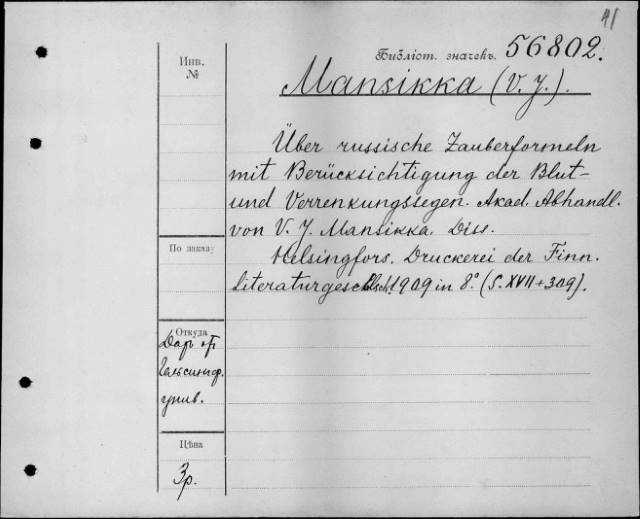 41
Библіот. значекъ. 56802.
Инв.
№
Mansikka (V. J.).
Über russische Zauberformeln
mit Berücksichtigung der Blut-
und Verrenkungssegen. Akad. Abhandl.
von V. J. Mansikka. Diss.
Helsingfors. Druckerei der Finn.
Literaturgesellsch. 1909 in 8° (S. XVII + 309).
По заказу
Откуда
Даръ отъ
Гельсингф.
унив.
Цѣна
3р.